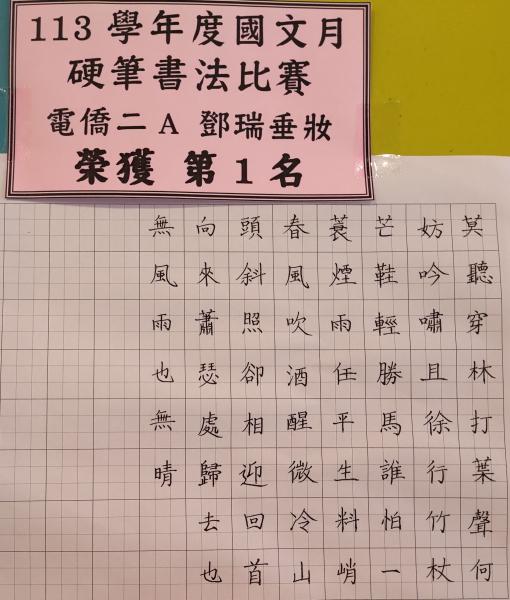 113學年度國文月
硬筆書法比賽
電僑二A 鄧瑞垂妝
榮獲 第1名
莫聽穿林打葉聲何
妨吟嘯且徐行竹杖
芒鞋輕勝馬誰怕一
蓑煙雨任平生料峭
春風吹酒醒微冷山
頭斜照卻相迎回首
向來蕭瑟處歸去也
無風雨也無晴